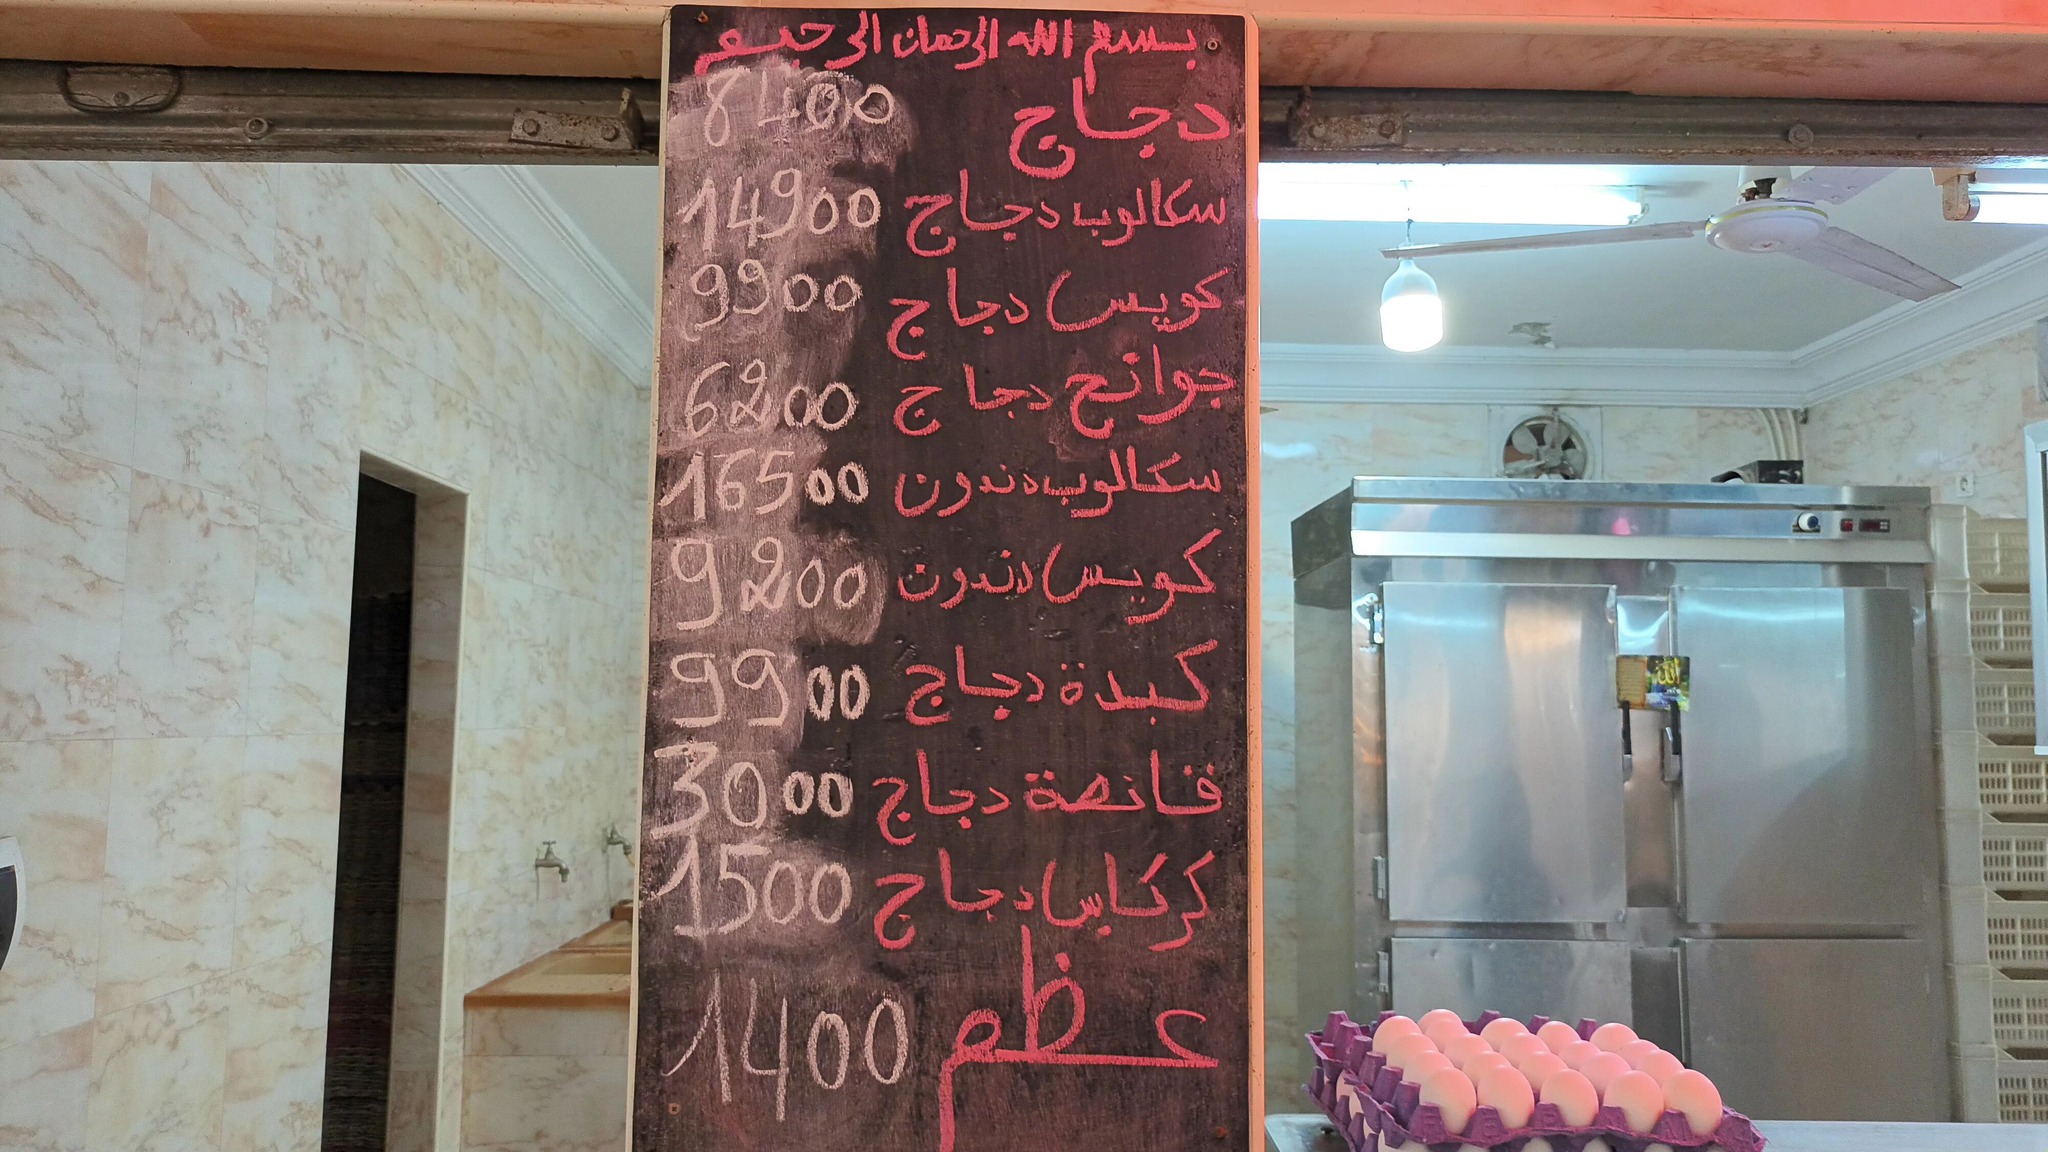 بسم الله الرحمان الرحيم
دجاج 8400
سكالوب دجاج 14900
كويس دجاج 9900
جوانح دجاج 6200
سكالوب دندون 16500
كويس دندون 9200
كبدة دجاج 9900
قانصة دجاج 3000
كركاس دجاج 1500
عظم 1400